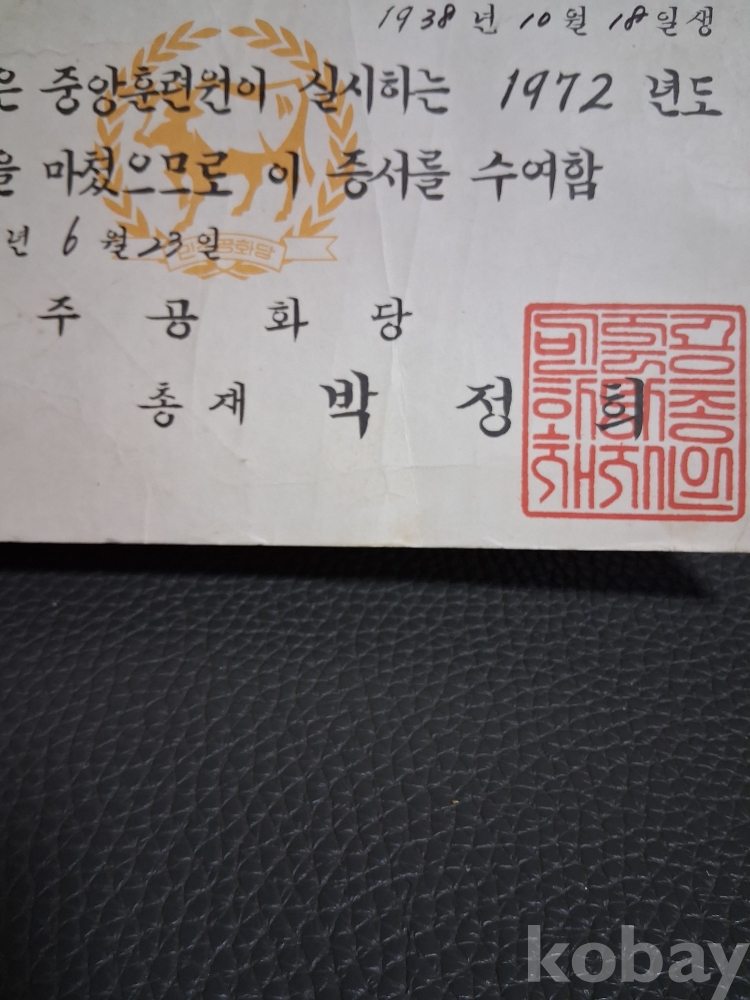 1938년 10월 18일생
은 중앙훈련원이 실시하는 1972 년도
을 마쳤으므로 이 증서를 수여함
년 6월 23일
민주공화당
주 공 화 당
총재 박 정 희
kobay